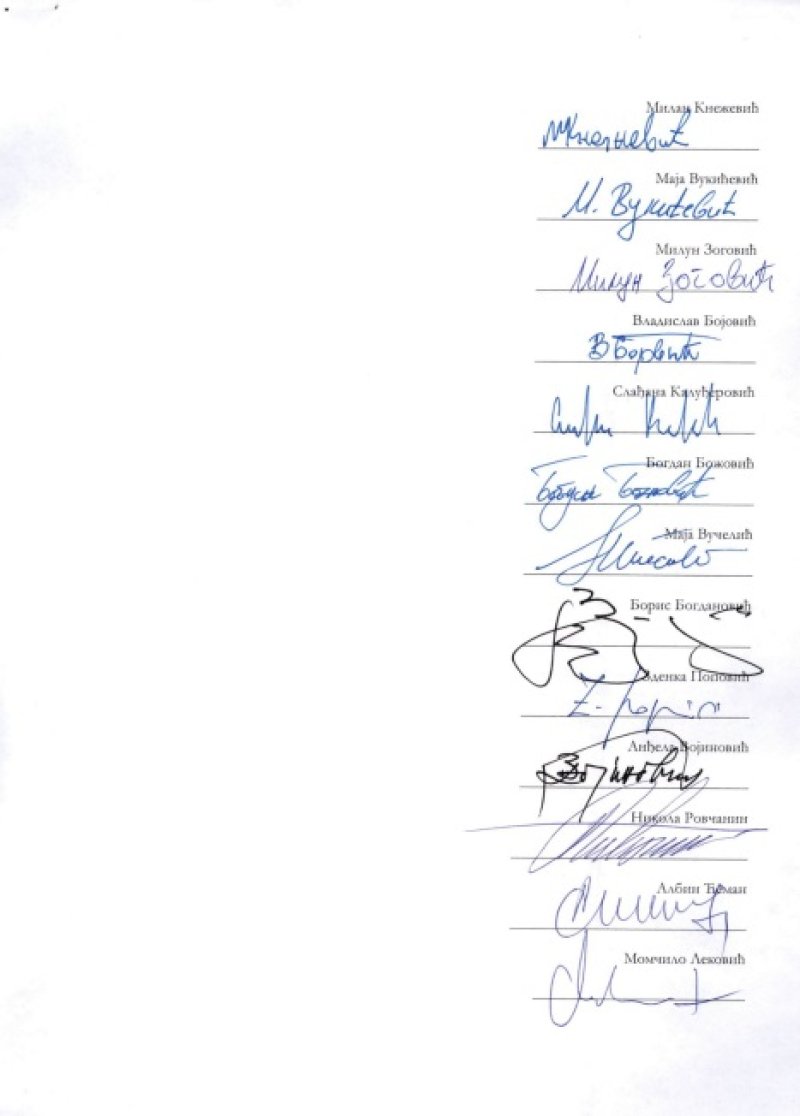 Милан Кнежевић
МКнежевић
Маја Вукићевић
М. Вукићевић
Милун Зоговић
Милун Зоговић
Владислав Бојовић
Слађана Калуђеровић
Богдан Божовић
Богдан Божовић
Маја Вучелић
Борис Богдановић
Зденка Поповић
Анђела Војиновић
Војиновић
Никола Ровчанин
Албин Ћеман
Момчило Лековић